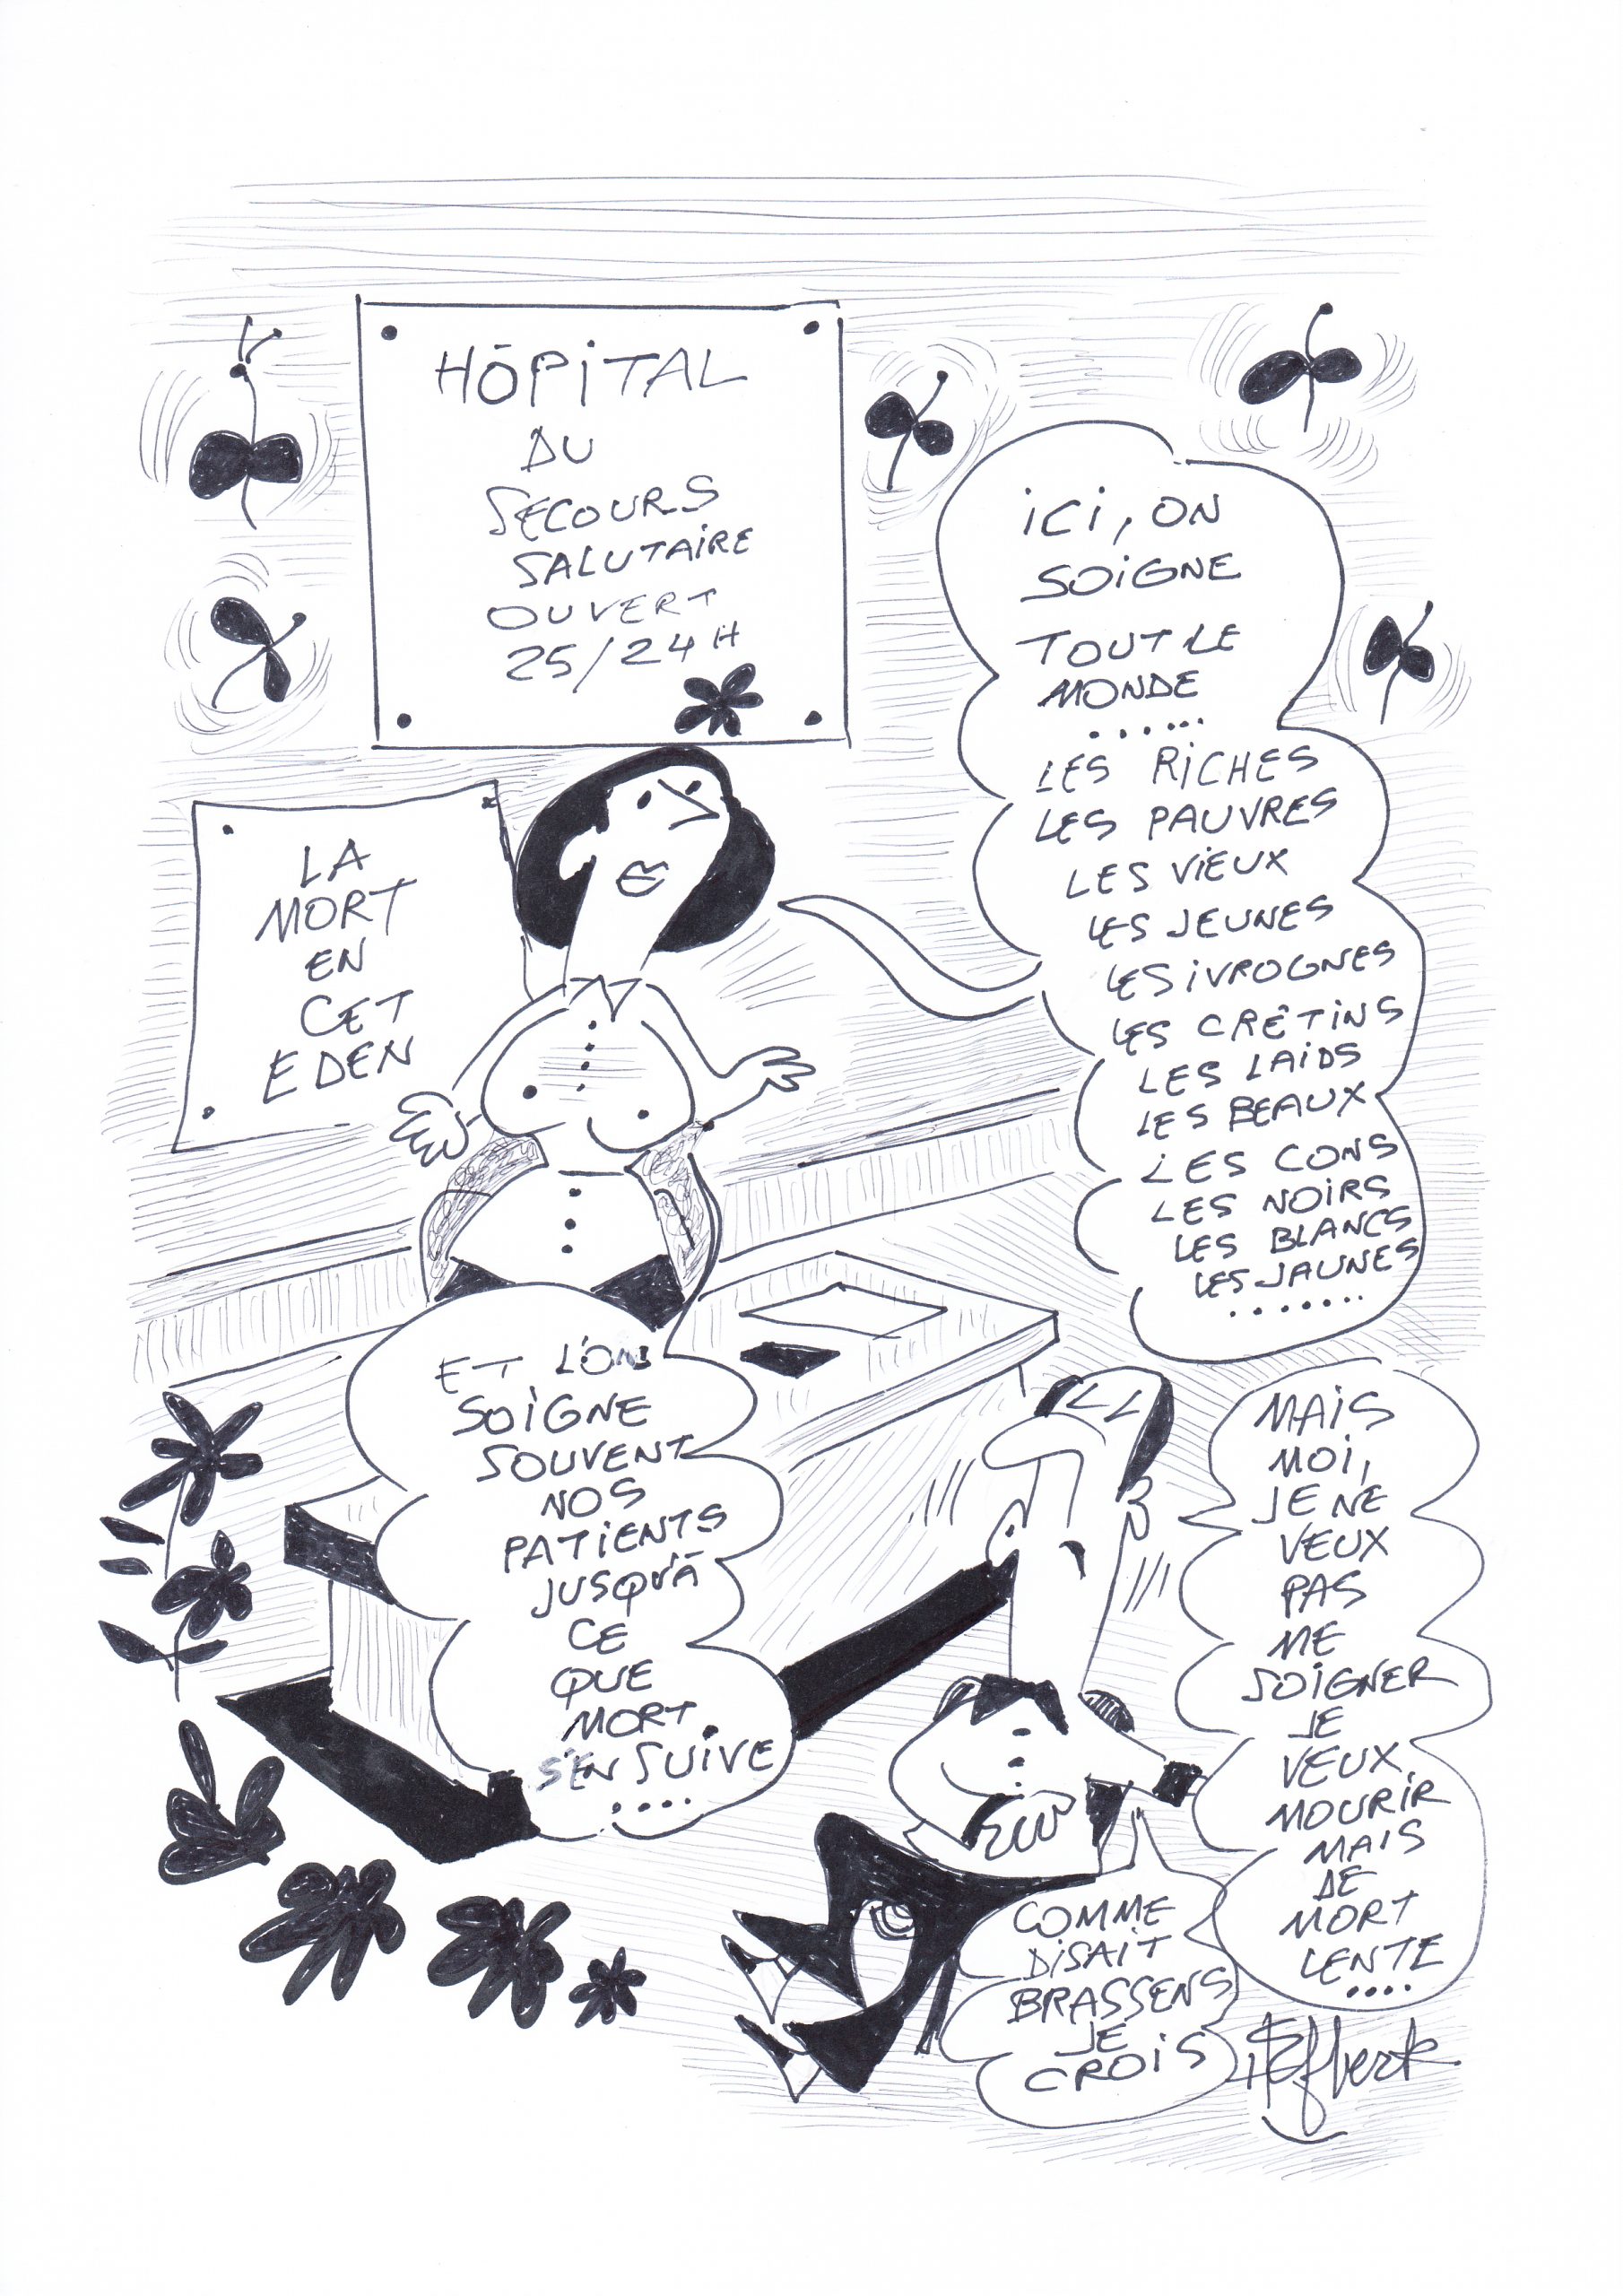 HÔPITAL
DU
SECOURS
SALUTAIRE
OUVERT
25/24H
LA
MORT
EN
CET
EDEN
ICI, ON
SOIGNE
TOUT LE
MONDE
......
LES RICHES
LES PAUVRES
LES VIEUX
LES JEUNES
LES IVROGNES
LES CRÊTINS
LES LAIDS
LES BEAUX
LES CONS
LES NOIRS
LES BLANCS
LES JAUNES
.......
ET L'ON
SOIGNE
SOUVENT
NOS
PATIENTS
JUSQU'À
CE
QUE
MORT
S'EN SUIVE
....
MAIS
MOI,
JE NE
VEUX
PAS
ME
SOIGNER
JE
VEUX
MOURIR
MAIS
DE
MORT
LENTE
....
COMME
DISAIT
BRASSENS
JE
CROIS